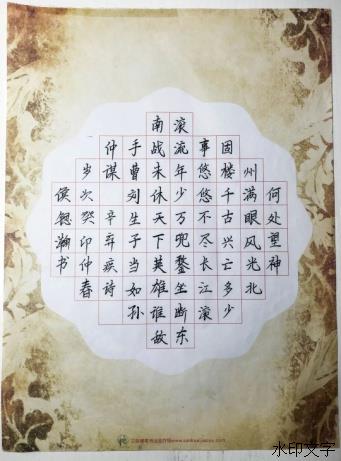 何处望神
州满眼风光北
固楼千古兴亡多少
事悠悠不尽长江滚
滚流年少万兜鍪坐断东
南战未休天下英雄谁敌
手曹刘生子当如孙
仲谋 辛弃疾诗
岁次癸卯仲春
侯锶瀚书
水印文字